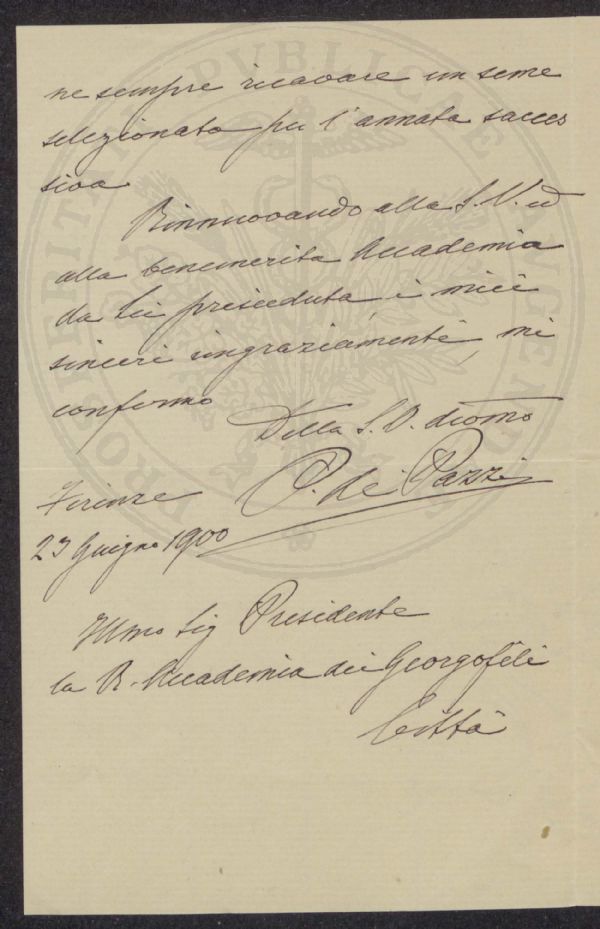 ne sempre ricavare un seme
selezionato per l'annata succes
siva
Rinnuovando alla S. V. ed
alla benemerita Accademia
da Lei presieduta, i miei
sinceri ringraziamenti, mi
confermo
Della S. V. devotmo
P. de' Pazzi
Firenze
23 Giugno 1900
Illmo Sig Presidente
la R. Accademia dei Georgofili
Città